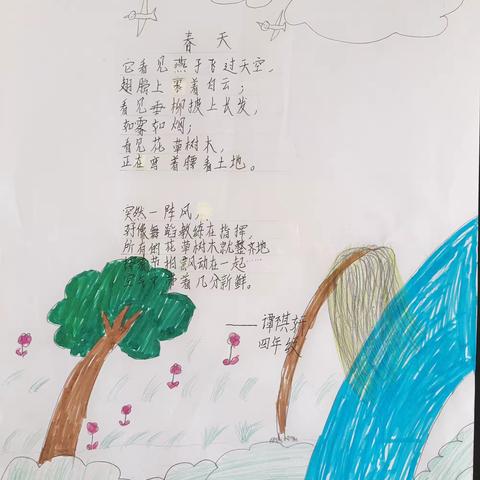 春天
它看见燕子飞过天空，
翅膀上裹着白云；
看见垂柳披上长发，
如雾如烟；
看见花草树木，
正在弯着腰看土地。
突然一阵风，
好像舞蹈教练在指挥，
所有的花草树木就整齐地
节拍 动在一起……
着几分新鲜。
——谭祺轩
四年级